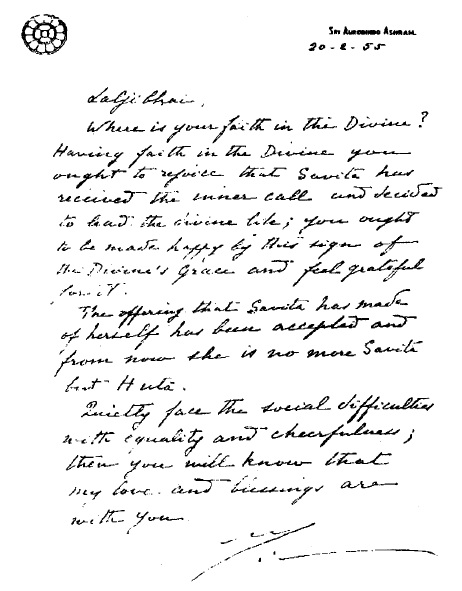 SRI AUROBINDO ASHRAM
20-2-55
Lalji bhai,
Where is your faith in the Divine?
Having faith in the Divine you
ought to rejoice that Savita has
received the inner call and decided
to lead the divine life; you ought
to be made happy by this sign of
the Divine's Grace and feel grateful
for it.
The offering that Savita has made
of herself has been accepted and
from now she is no more Savita
but Huta.
Quietly face the social difficulties
with equality and cheerfulness;
then you will know that
my love and blessings are
with you